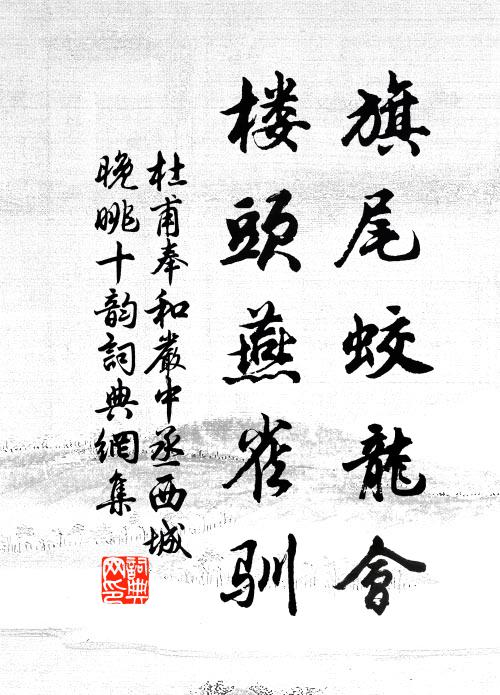 旗尾蛟龍會
楼頭燕雀馴
杜甫奉和嚴中丞西城
晚眺十韵詞典網集
詞典
网印